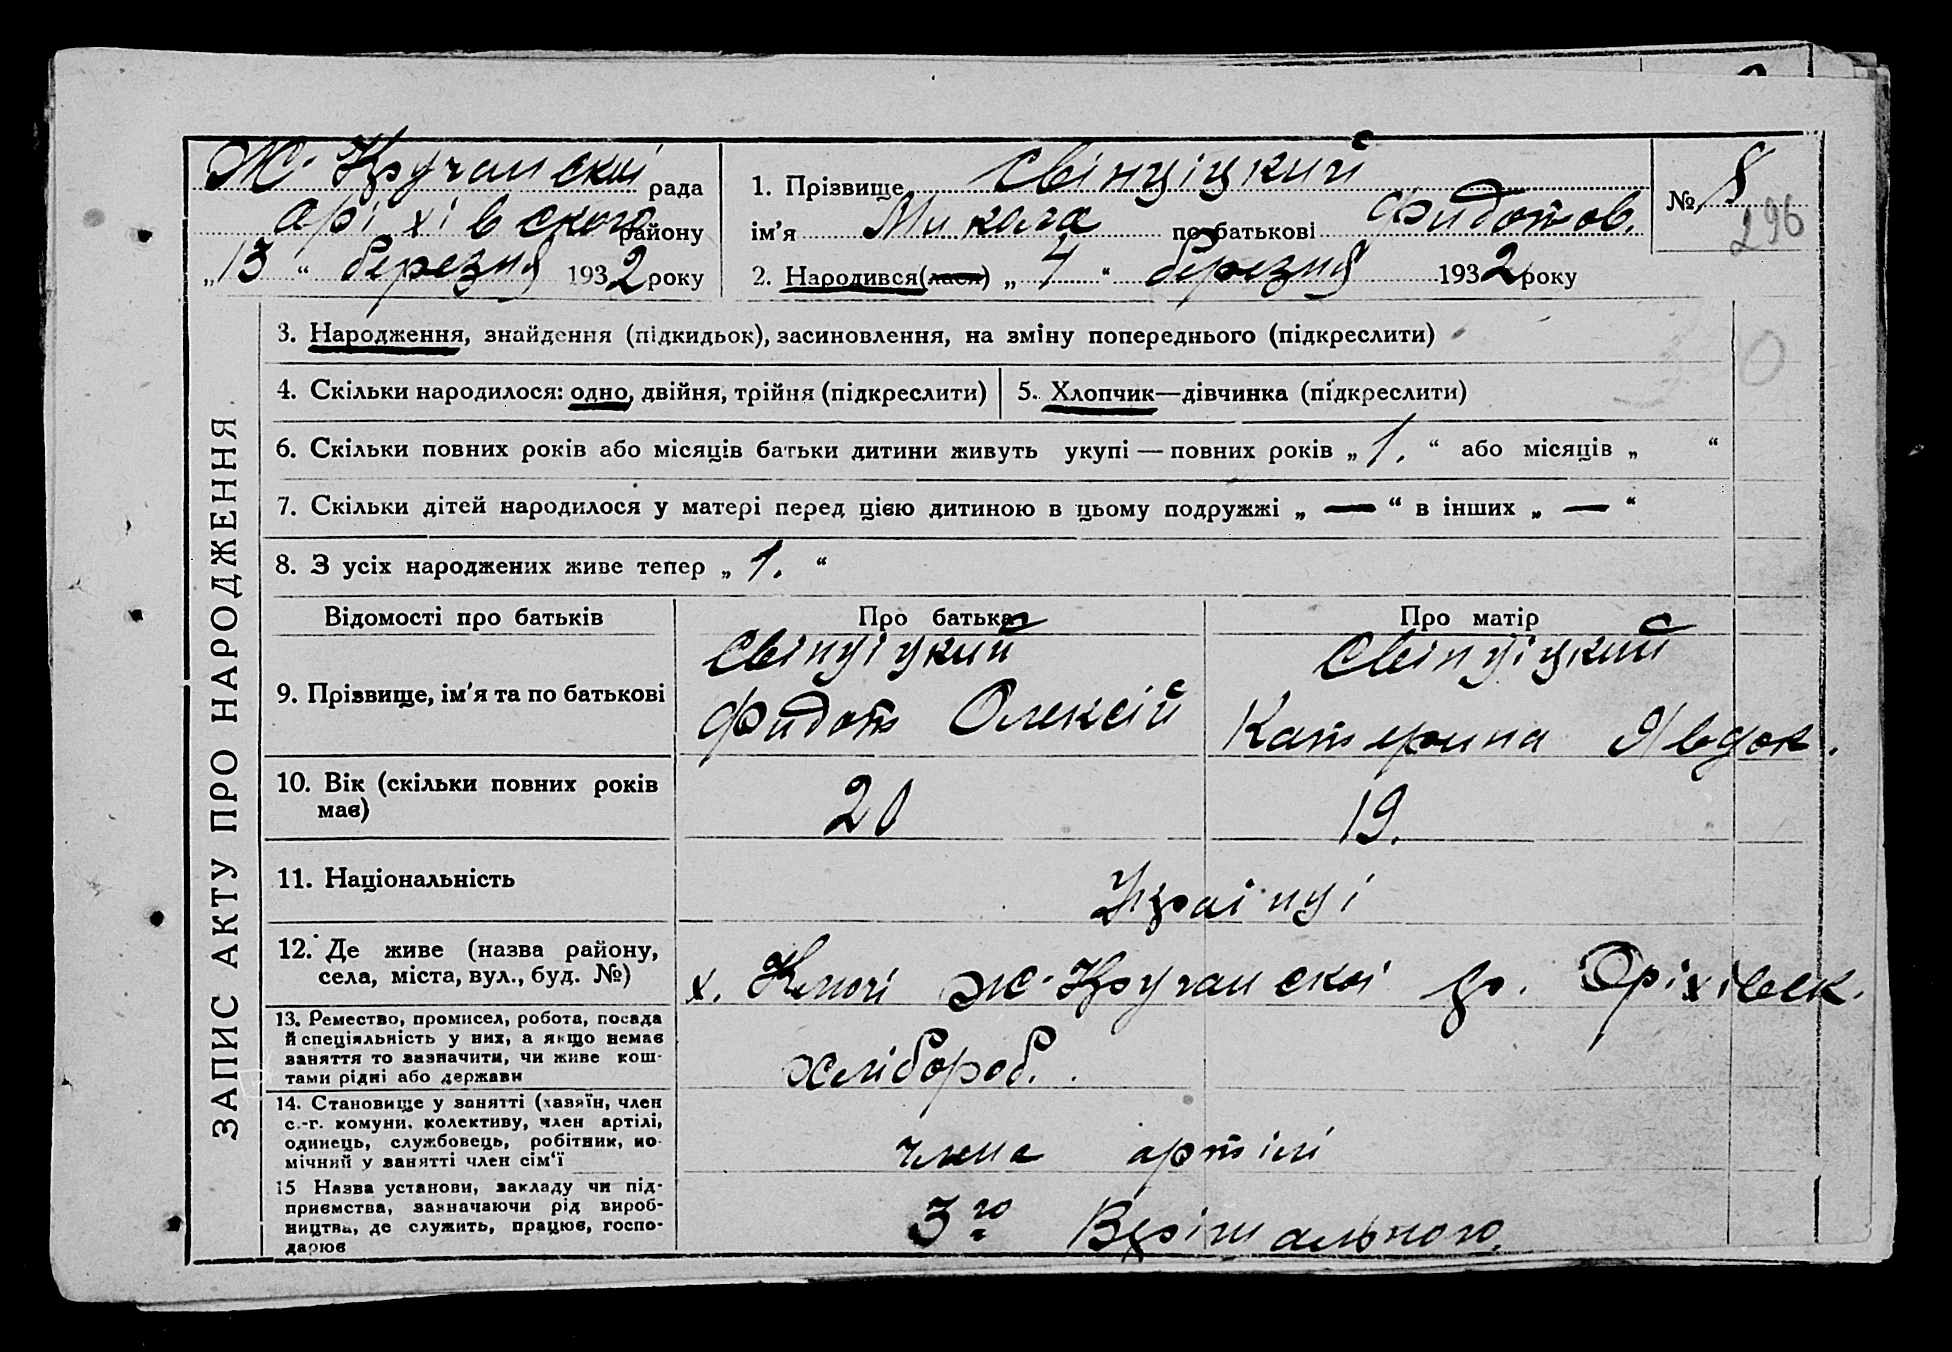 Ж. Кручанскій рада
Оріхівского району
„13“ березня 1932 року
1. Прізвище Свінціцкий
ім’я Микола по батькові Фидотов.
2. Народився(лася) „4“ березня 1932 року
№ 8
296
ЗАПИС АКТУ ПРО НАРОДЖЕННЯ
3. Народження, знайдення (підкидьок), засиновлення, на зміну попереднього (підкреслити)
4. Скільки народилося: одно, двійня, трійня (підкреслити)
5. Хлопчик—дівчинка (підкреслити)
6. Скільки повних років або місяців батьки дитини живуть укупі — повних років „1.“ або місяців „ “
7. Скільки дітей народилося у матері перед цією дитиною в цьому подружжі „—“ в інших „—“
8. З усіх народжених живе тепер „1.“
Відомості про батьків
Про батька
Про матір
9. Прізвище, ім’я та по батькові
Свінціцкий
Фидот Олексій
Свінціцкий
Катерина Явдок.
10. Вік (скільки повних років
має)
20
19.
11. Національність
Украінці
12. Де живе (назва району,
села, міста, вул., буд. №)
х. Ключі Ж. Кручанскоі Оріхівск.
13. Ремество, промисел, робота, посада
й спеціяльність у них, а якщо немає
заняття то зазначити, чи живе кош-
тами рідні або держави
хлібороб.
14. Становище у занятті (хазяїн, член
с.-г. комуни, колективу, член артілі,
одинець, службовець, робітник, по-
мічний у занятті член сім‘ї
члена артілі
15 Назва установи, закладу чи під-
приємства, зазначаючи рід вироб-
ництва, де служить, працює, госпо-
дарює
3го Врішального.